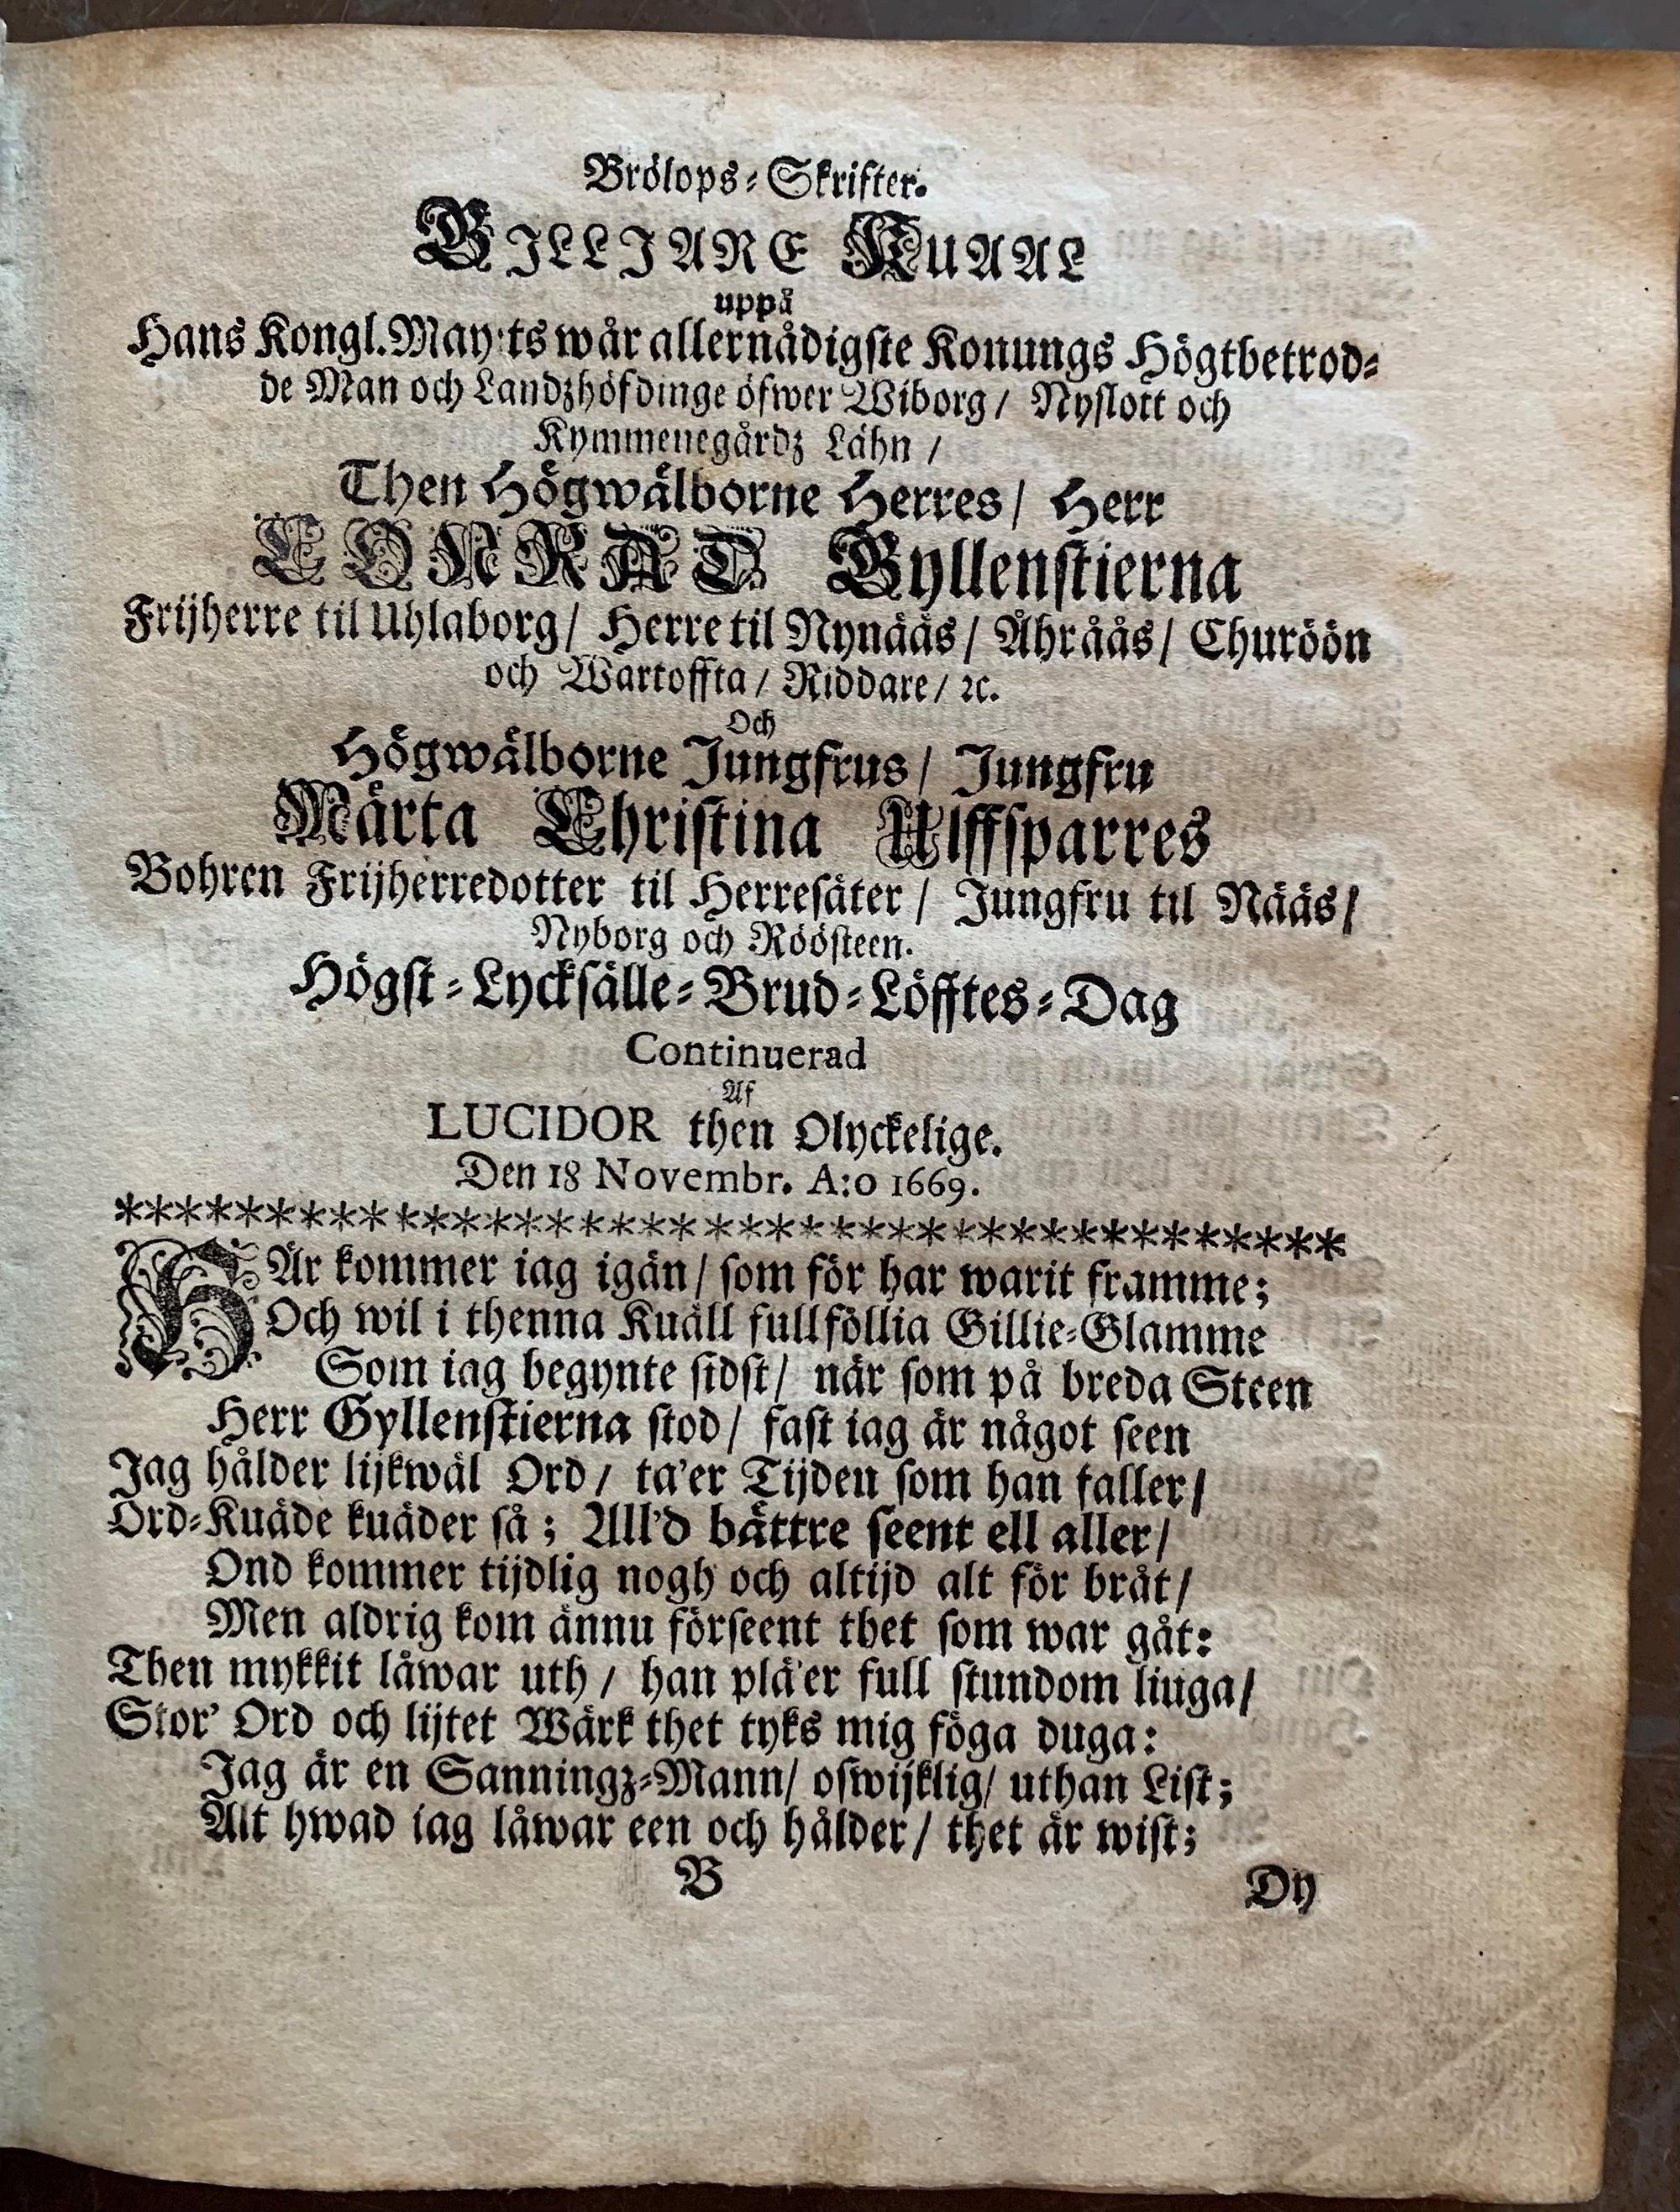 Brölops-Skrifter.
GILLIARE KUAAL
uppå
Hans Kongl. May:ts wår allernådigste Konungs Högtbetrod-
de Man och Landzhöfdinge öfwer Wiborg/ Nyslott och
Kymmenegårdz Lähn /
Then Högwälborne Herres/ Herr
CONRAD Gyllenstierna
Frijherre til Uhlaborg/ Herre til Nynääs/ Åhråås/ Churöön
och Wartoffta/ Riddare/ ꝛc.
Och
Högwälborne Jungfrus/ Jungfru
Märta Christina Ulffsparres
Bohren Frijherredotter til Herresäter/ Jungfru til Nääs/
Nyborg och Röösteen.
Högst-Lycksälle-Brud-Löfftes-Dag
Continuerad
Af
LUCIDOR then Olyckelige.
Den 18 Novembr. A:o 1669.
HÄr kommer iag igän/ som för har warit framme;
Och wil i thenna Kuäll fullföllia Gillie-Glamme
Som iag begynte sidst/ när som på breda Steen
Herr Gyllenstierna stod/ fast iag är något seen
Jag hålder lijkwäl Ord/ ta'er Tijden som han faller/
Ord-Kuäde kuäder så; All'd bättre seent ell aller/
Ond kommer tijdlig nogh och altijd alt för bråt/
Men aldrig kom ännu förseent thet som war gåt:
Then mykkit låwar uth/ han plä'er full stundom liuga/
Stor' Ord och lijtet Wärk thet tyks mig föga duga:
Jag är en Sanningz-Mann/ oswijklig/ uthan List;
Alt hwad iag låwar een och hålder/ thet är wist;
B
Dy